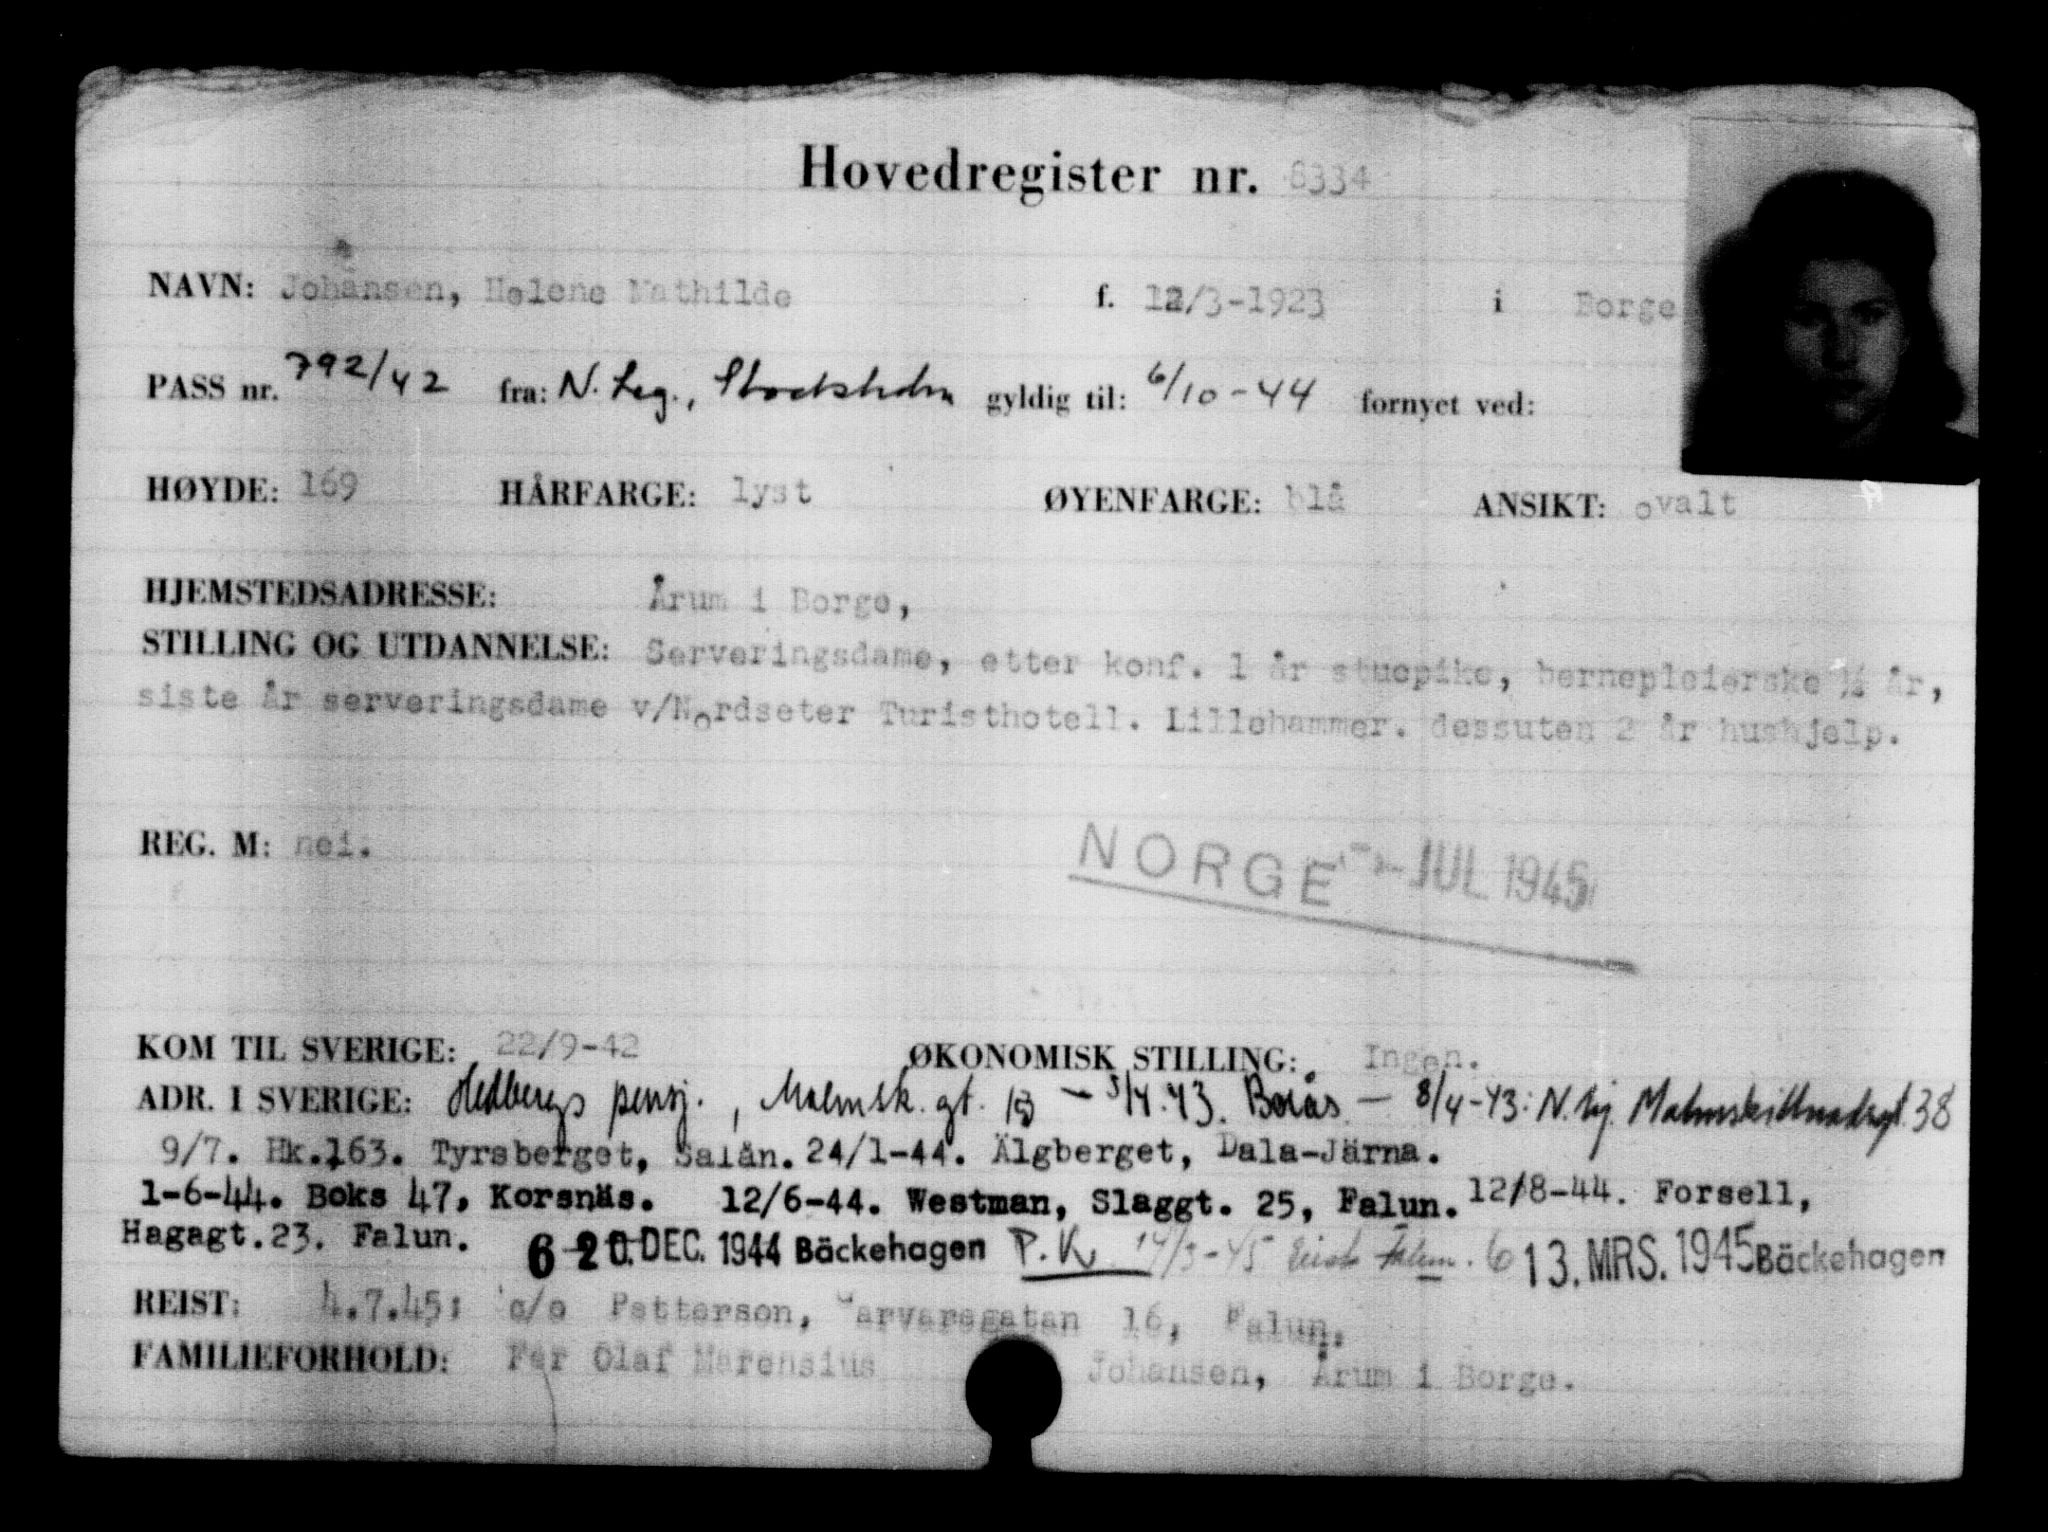 Hovedregister nr. 8334
NAVN: Johansen, Helene Mathilde f. 12/3-1923 i Borge
PASS nr. 792/42 fra: N. Leg., Stockholm gyldig til: 6/10-44 fornyet ved:
HØYDE: 169 HÅRFARGE: lyst ØYENFARGE: blå ANSIKT: ovalt
HJEMSTEDSADRESSE: Årum i Borge,
STILLING OG UTDANNELSE: Serveringsdame, etter konf. 1 år stuepike, bernepleierske ½ år,
siste år serveringsdame v/Nordseter Turisthotell. Lillehammer. dessuten 2 år hushjelp.
REG. M: nei.
NORGE - JUL 1945
KOM TIL SVERIGE: 22/9-42 ØKONOMISK STILLING: Ingen.
ADR. I SVERIGE: Hedbergs pensj., Malmsk.gt. - 3/4.43. Borås - 8/4-43: Malmskillnadsgt. 38
9/7. Hk.163. Tyrsberget, Salän. 24/1-44. Älgberget, Dala-Järna.
1-6-44. Boks 47, Korsnäs. 12/6-44. Westman, Slaggt. 25, Falun. 12/8-44. Forsell,
Hagagt.23. Falun. 6 20.DEC. 1944 Bäckehagen P.K. 14/3-45 Falun. 6 13. MRS. 1945 Bäckehagen
REIST: 4.7.45: c/o Petterson, arvaregatan 16, Falun.
FAMILIEFORHOLD: Far Olaf Marensius Johansen, Årum i Borge.